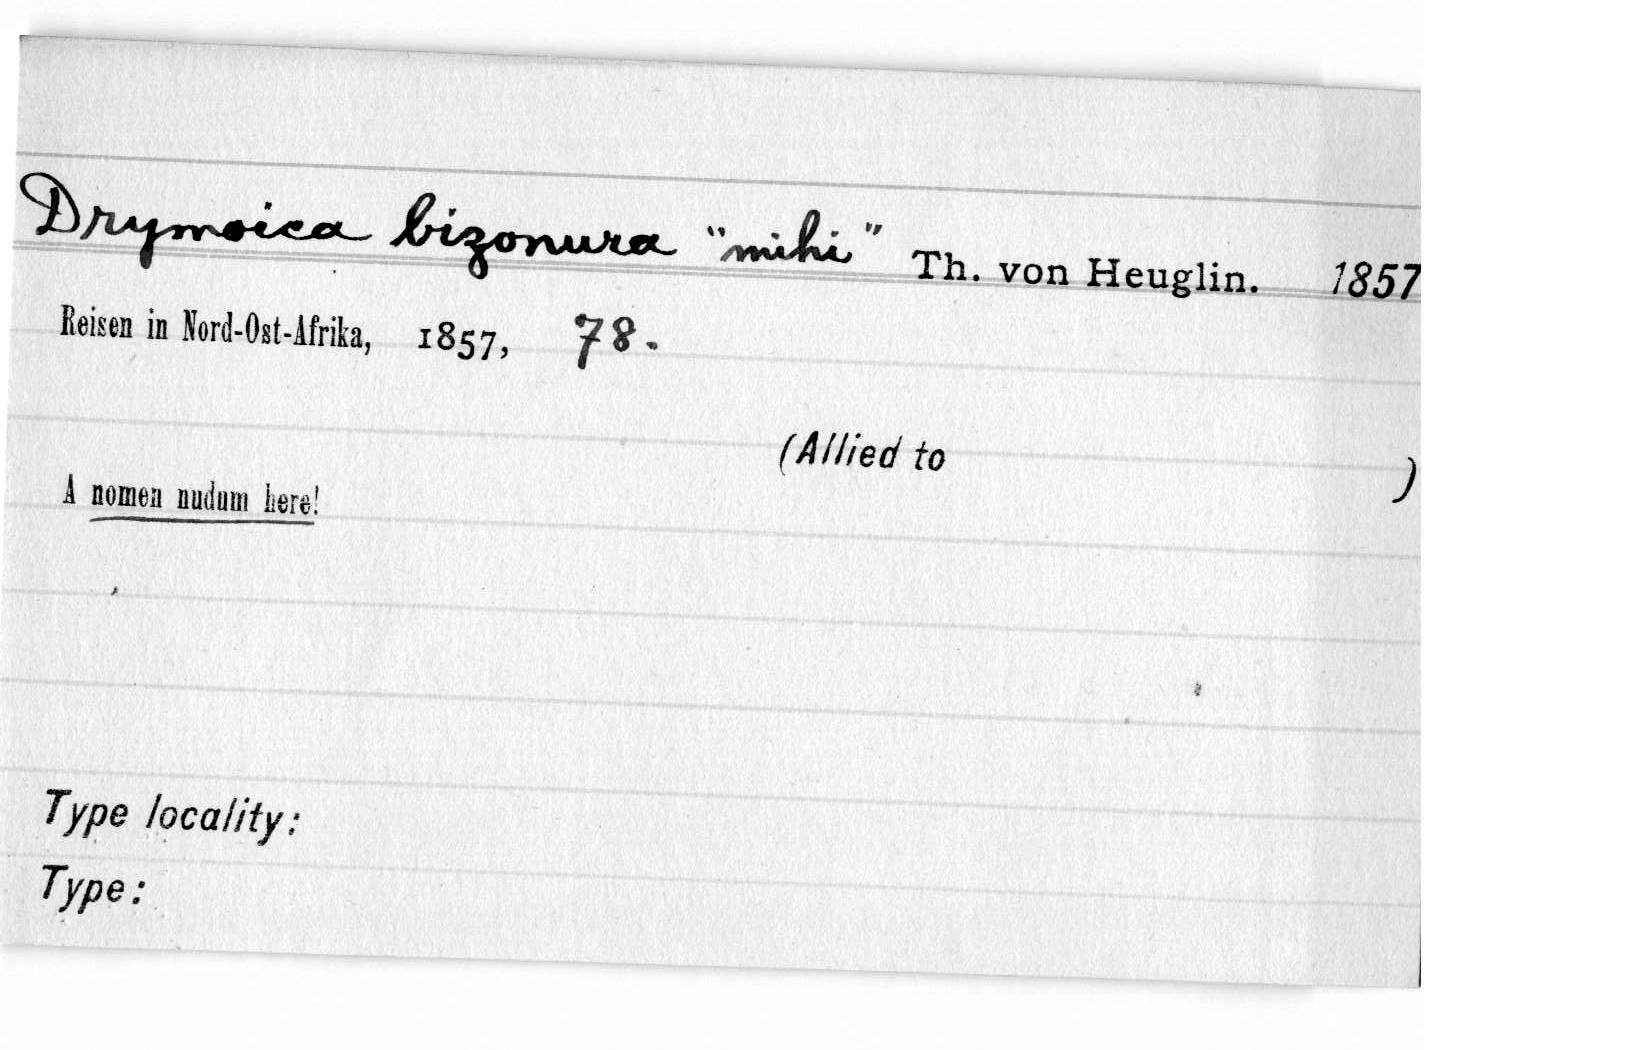 Drymoica bizonura "mihi" Th. von Heuglin. 1857
Reisen in Nord-Ost-Afrika, 1857, 78.
(Allied to )
A nomen nudum here!
Type locality:
Type: